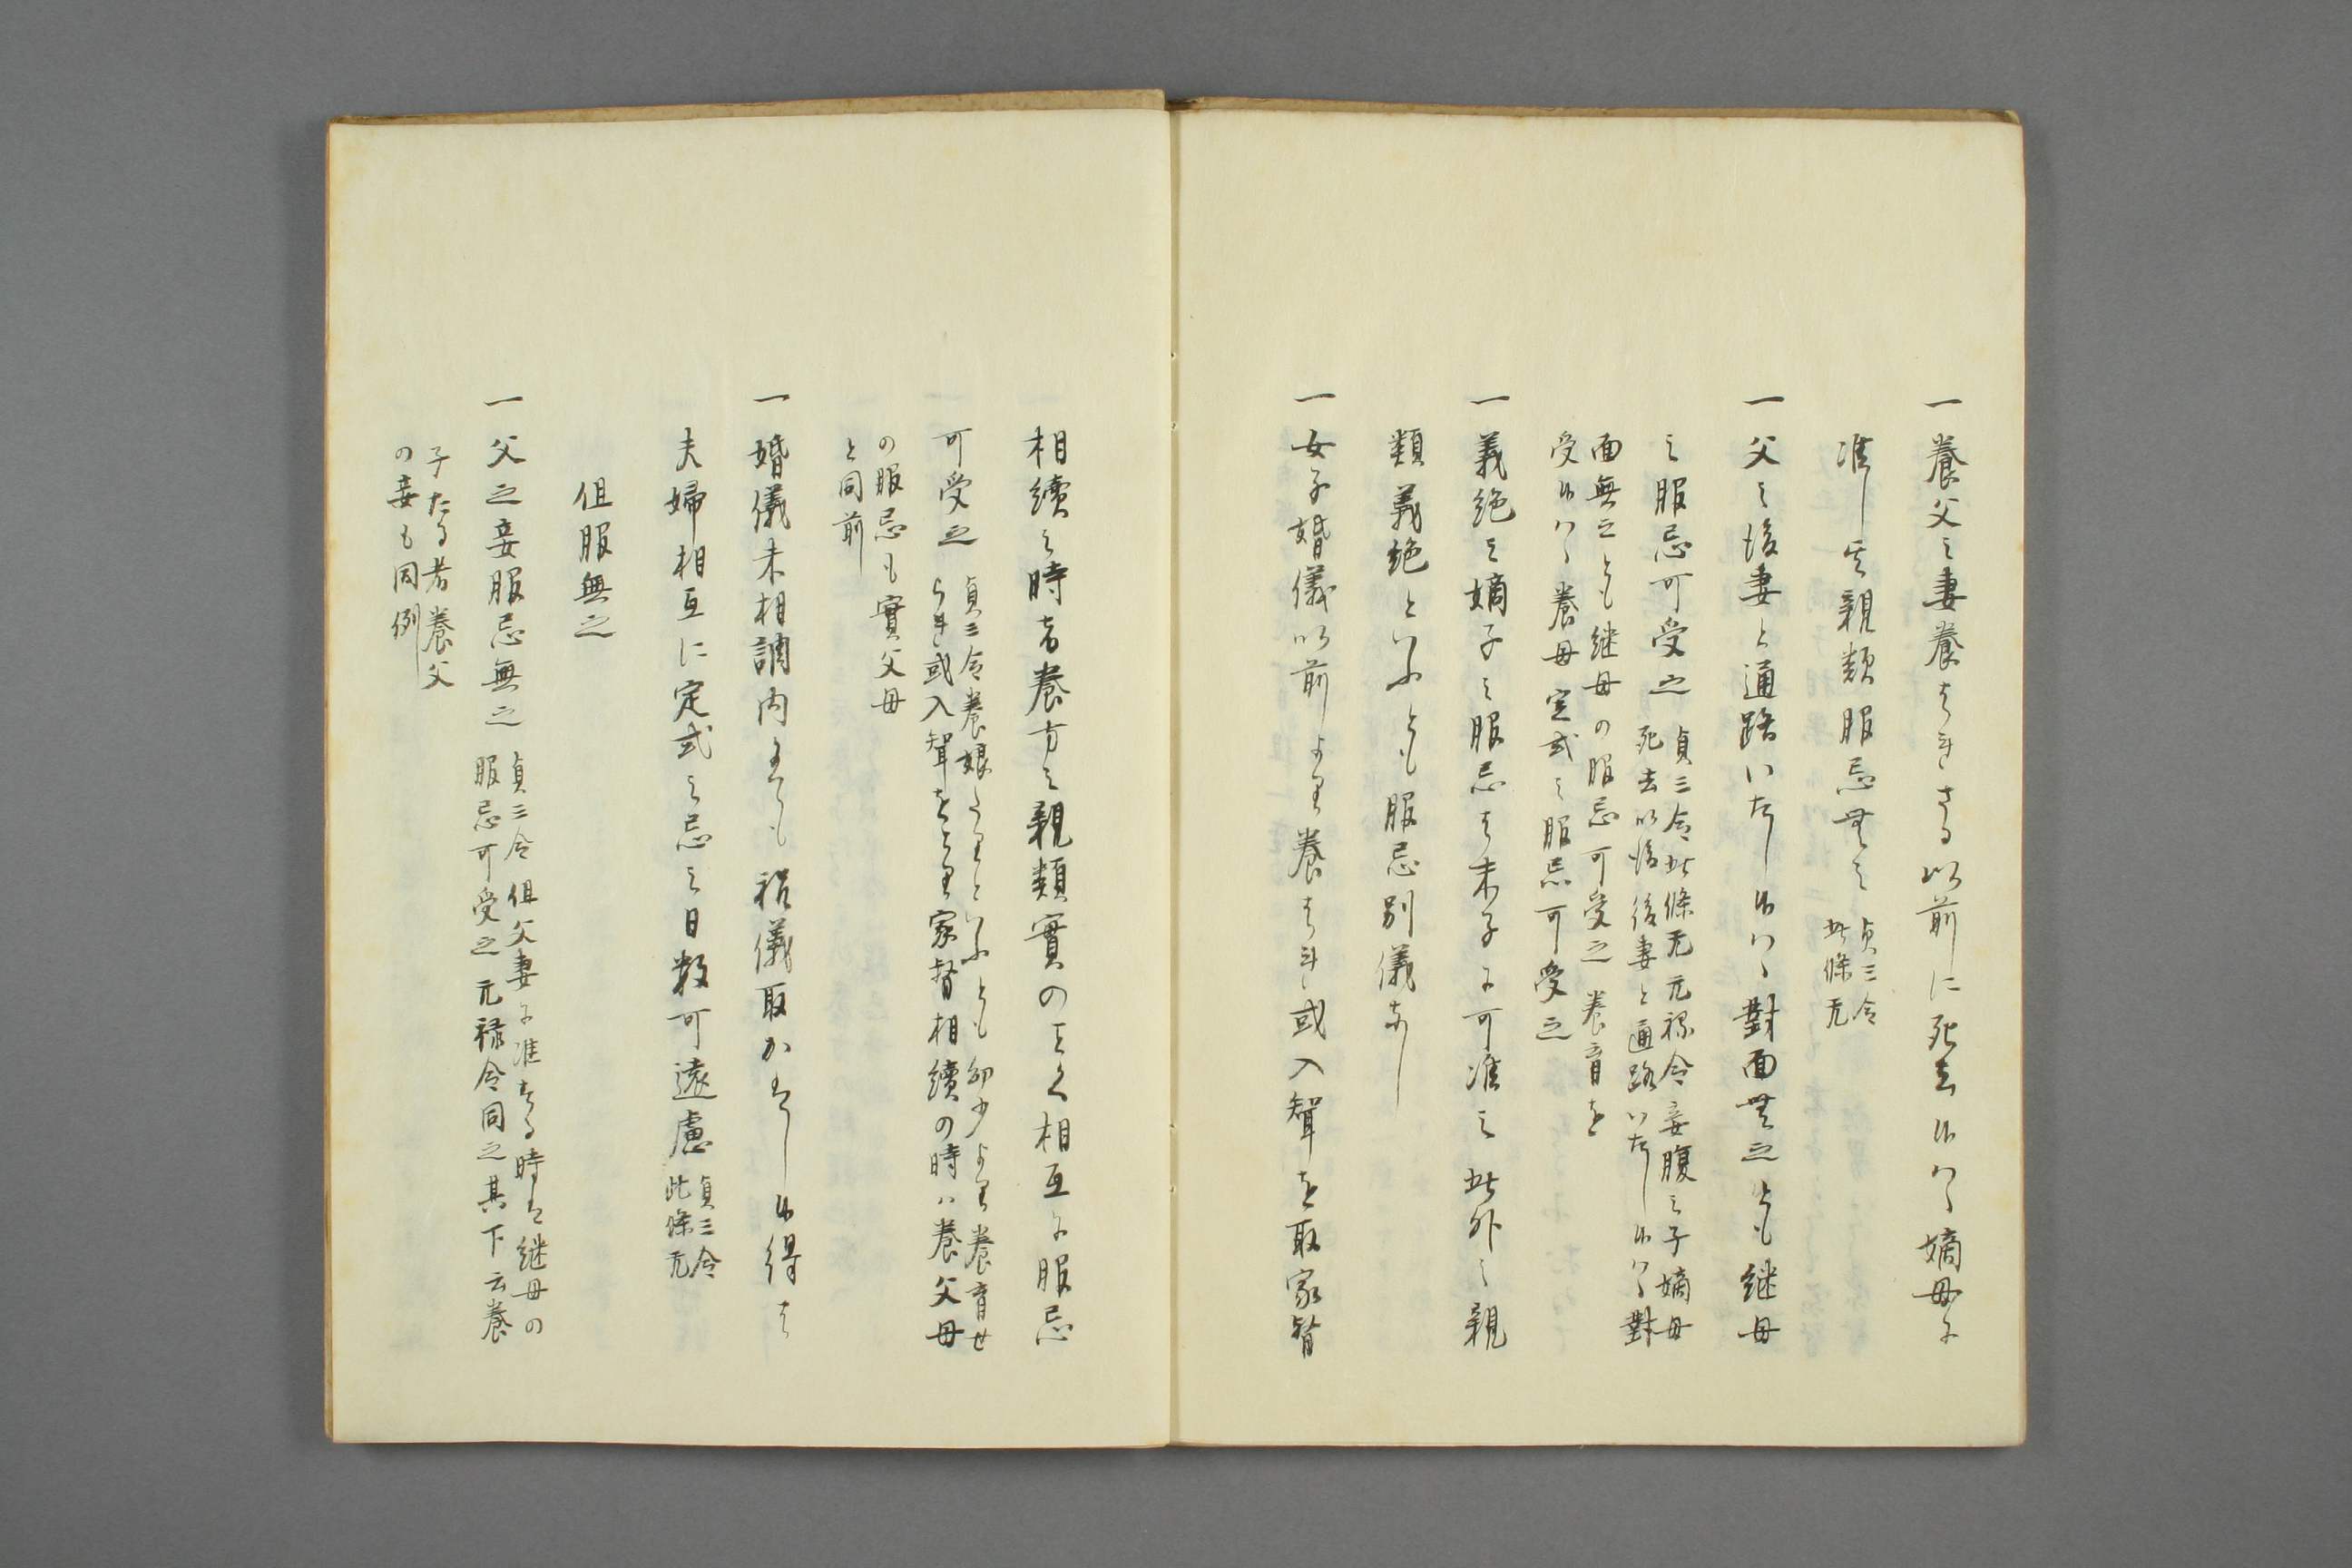 一養父之妻養はさる以前に死去候ハヽ嫡母に
准し其親類服忌無之
貞三令
此條无
一父之後妻と通路いたし候ハヽ對面無之とも継母
之服忌可受之
貞三令此條无元禄令妾腹之子嫡母
死去以後後妻と通路いたし候ハヽ對
面無之とも継母の服忌可受之養育を
受候ハヽ養母定式之服忌可受之
一義絶之嫡子之服忌は末子に可准之此外之親
類義絶といふとも服忌別儀なし
一女子婚儀以前より養はれ或入聟を取家督
相續之時者養方之親類實のことく相互に服忌
可受之
貞三令養娘たりといふとも幼少より養育せ
られ或入聟をとり家督相續の時ハ養父母
の服忌も實父母
と同前
一婚儀未相調内にても祝儀取かはし候得は
夫婦相互に定式之忌之日数可遠慮
貞三令
此條无
但服無之
一父之妾服忌無之
貞三令但父妻に准する時は継母の
服忌可受之元禄令同之其下云養
子たる者養父
の妾も同例